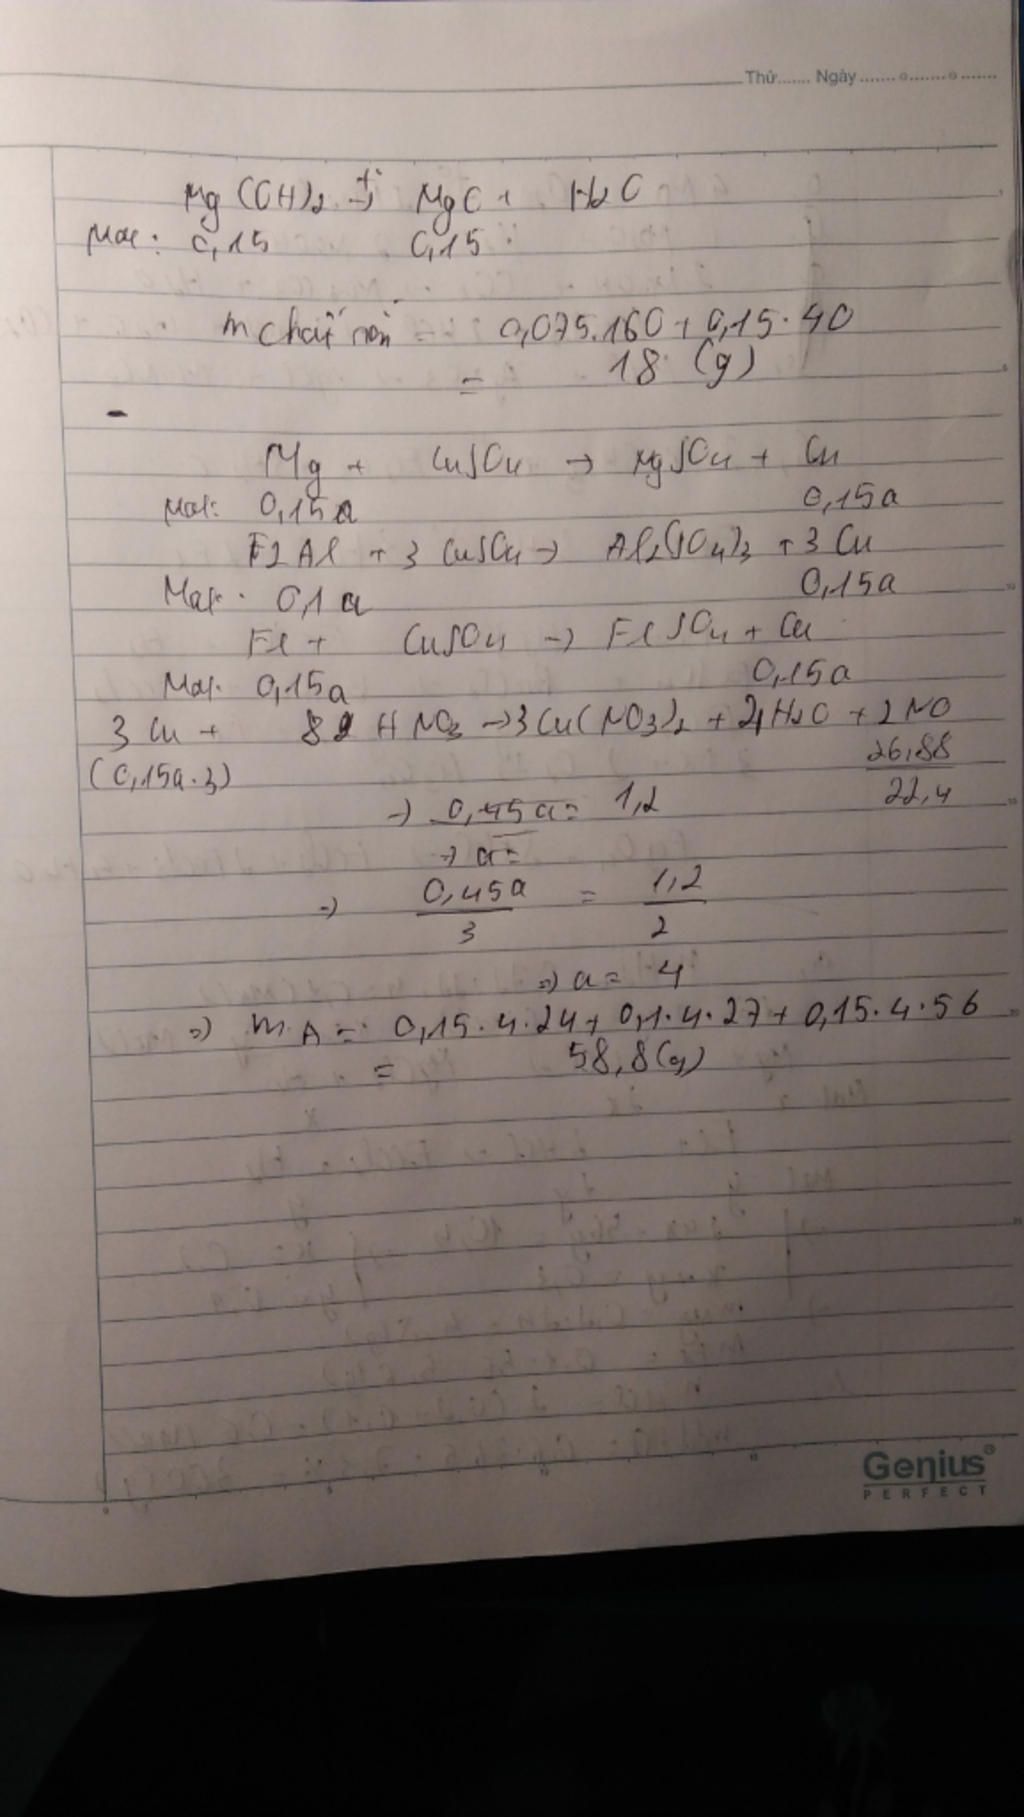 Thứ....... Ngày.............
Mg(OH)2 t°→ MgO + H2O
Mol: 0,15 0,15
m chất rắn = 0,075.160 + 0,15.40
= 18 (g)
-
Mg + CuSO4 → MgSO4 + Cu
Mol: 0,15a 0,15a
2Al + 3CuSO4 → Al2(SO4)3 + 3Cu
Mol: 0,1a 0,15a
Fe + CuSO4 → FeSO4 + Cu
Mol: 0,15a 0,15a
3Cu + 8HNO3 → 3Cu(NO3)2 + 4H2O + 2NO
(0,15a.3) 26,88/22,4
→ 0,45a = 1,2
→ a =
→ 0,45a/3 = 1,2/2
=> a = 4
=> mA = 0,15.4.24 + 0,1.4.27 + 0,15.4.56
= 58,8(g)
Genius
PERFECT